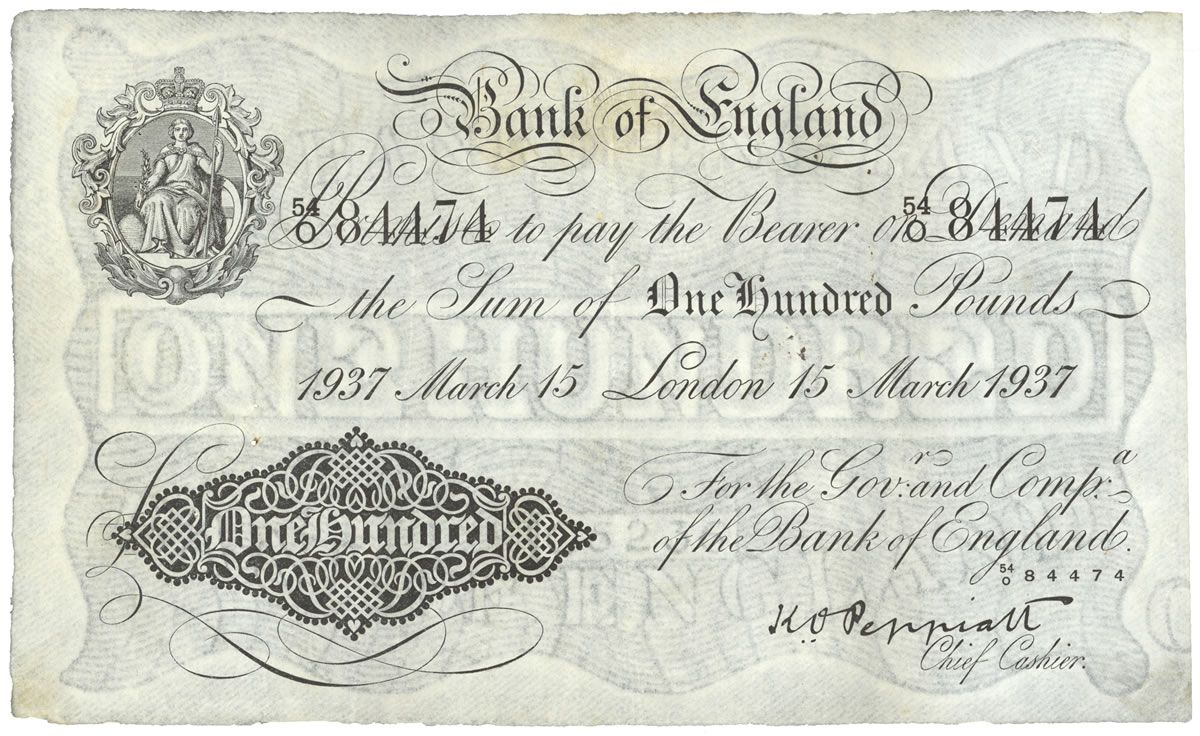 Bank of England
54/0 84474 54/0 84474
I Promise to pay the Bearer on Demand
the Sum of One Hundred Pounds
1937 March 15 London 15 March 1937
£ One Hundred
For the Gov.r and Comp.a
of the Bank of England.
54/0 84474
K O Peppiatt
Chief Cashier.